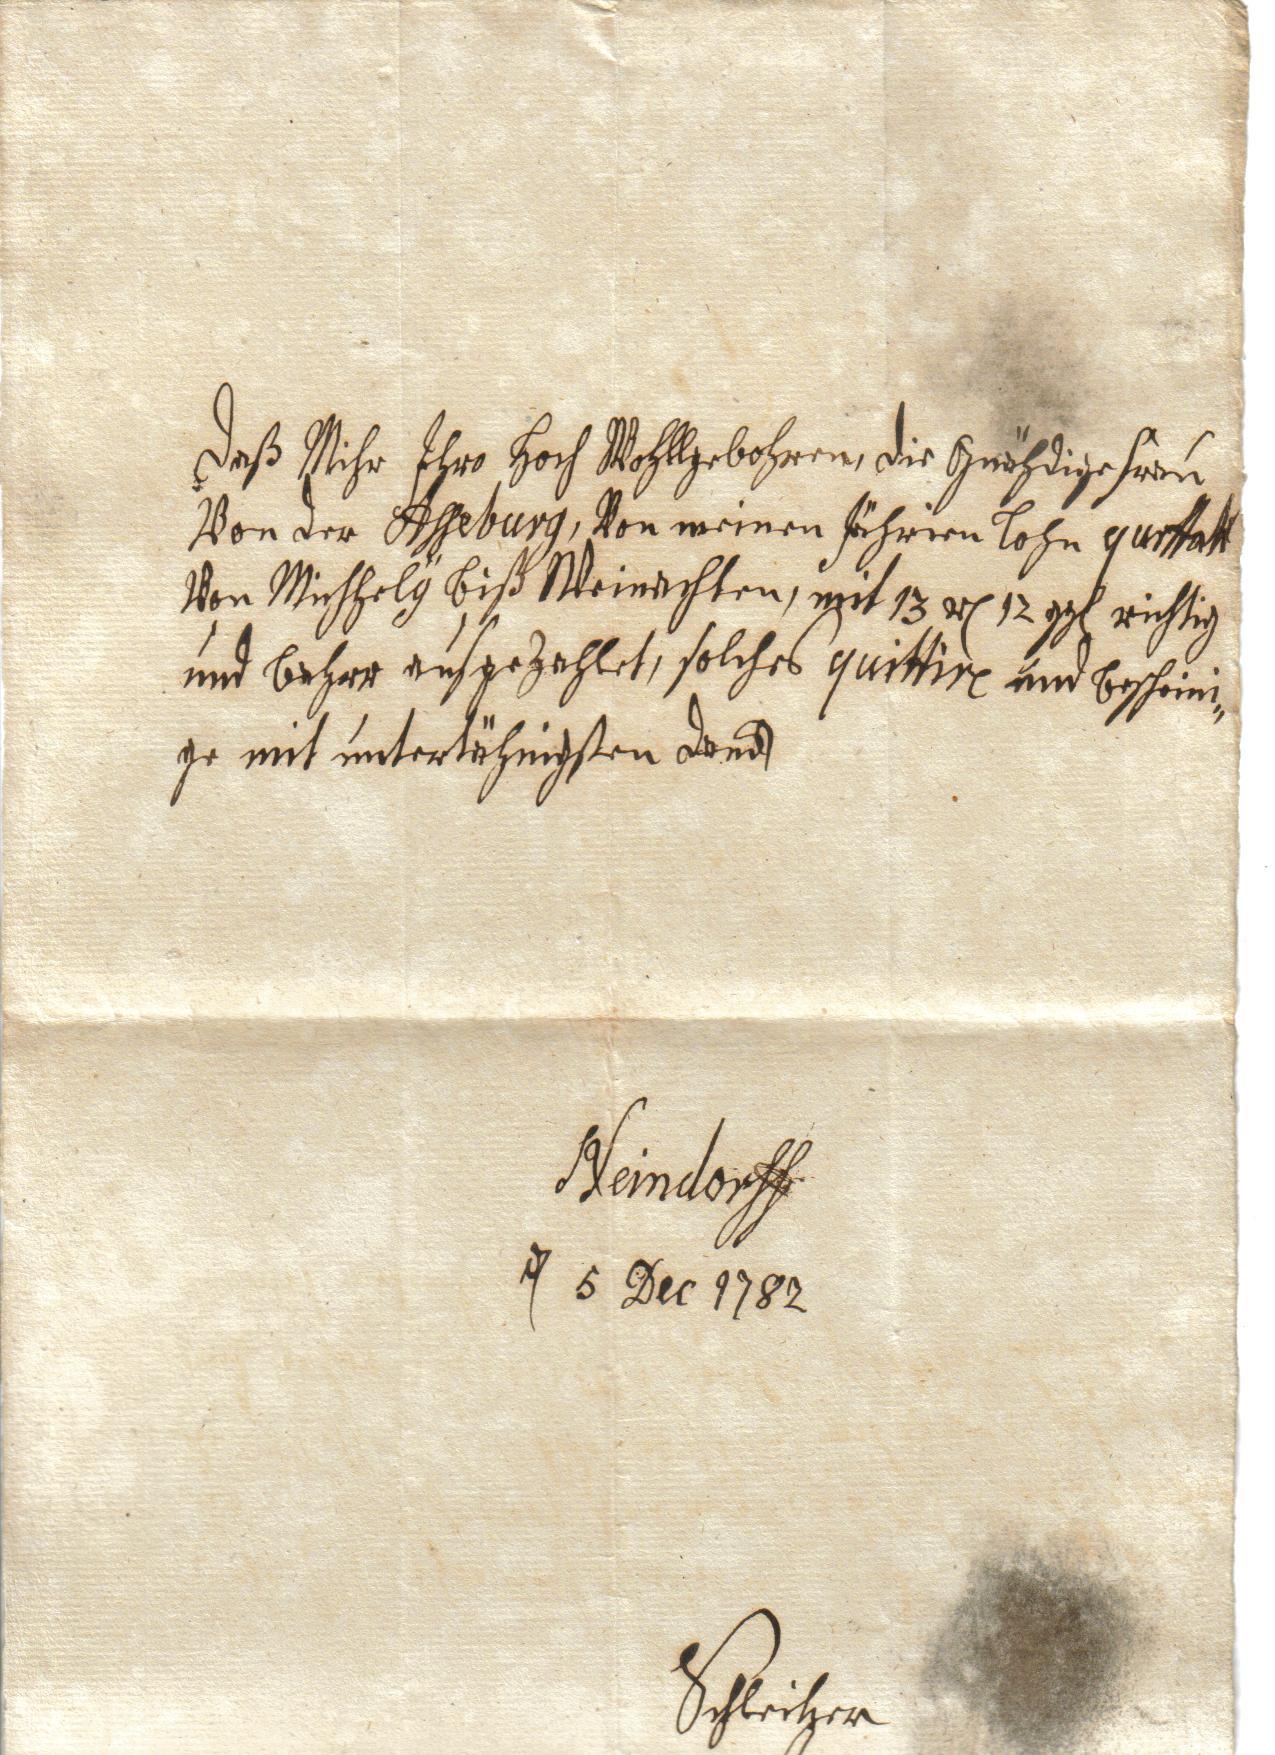 Daß Mihr Ihro Hoch Wohllgebohren, die Gnähdige Frau
Von der Asseburg, Von meinen Jährien Lohn quartall
Von Michhely biß Weinachten, mit 13 rl 12 ggl richtig
und bahrr ausgezahlet, solches quittire und bescheini„
ge mit untertähnigsten Danck
Neindorff
d 5 Dec 1782
Schleitzer